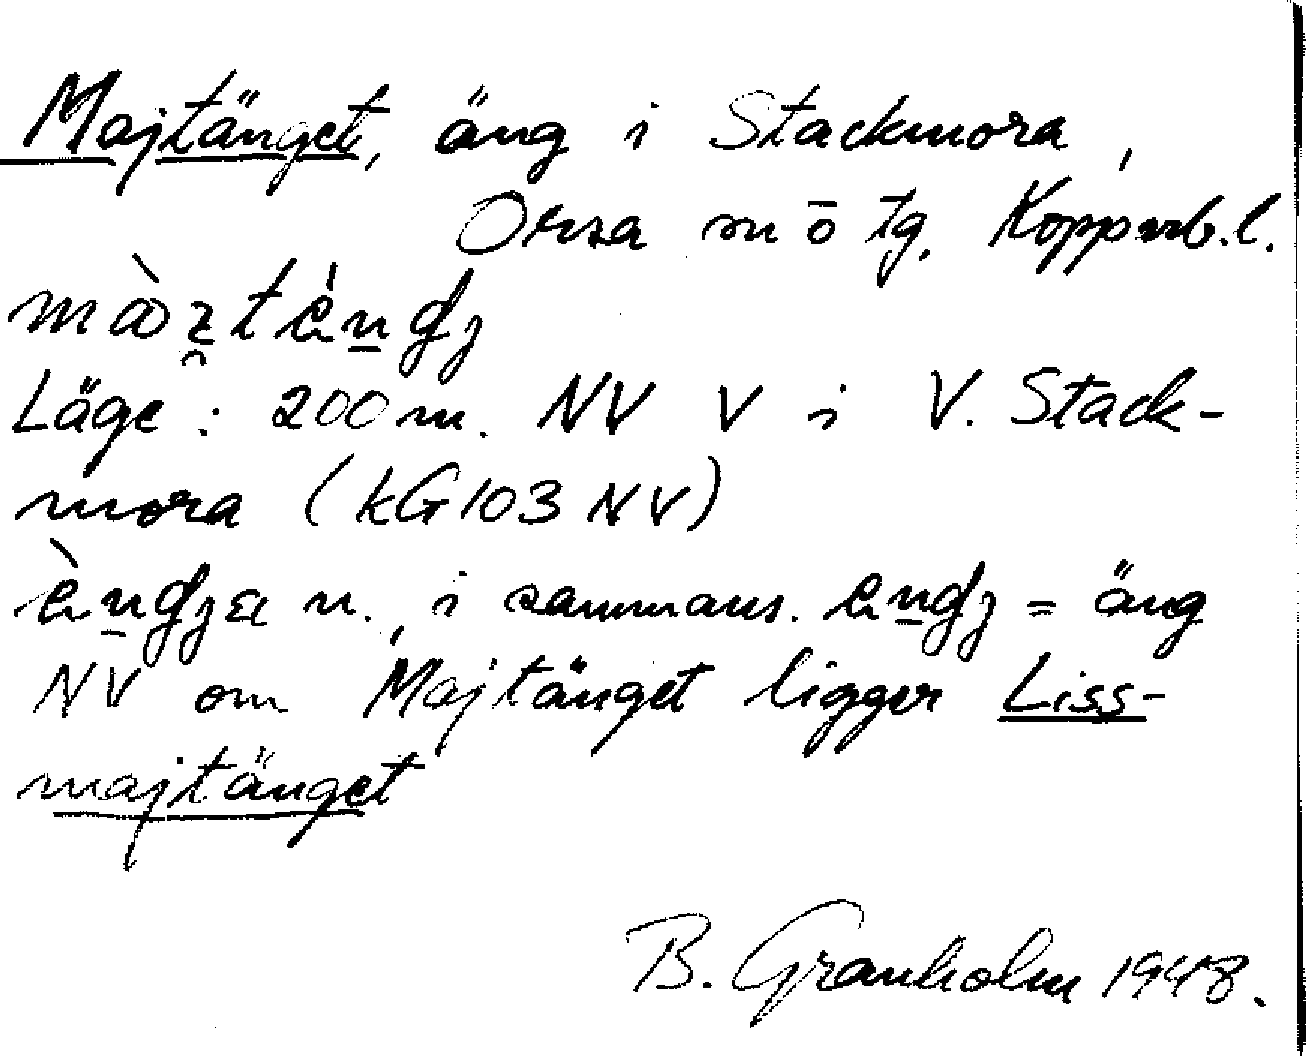 Majtänget, äng i Stackmora,
Orsa sn ö tg. Kopparb.l.
Läge: 200 m. NV V i V. Stack-
mora (kG103 NV)
n., i sammans. = äng
NV om Majtänget ligger Liss-
majtänget
B. Granholm 1948.